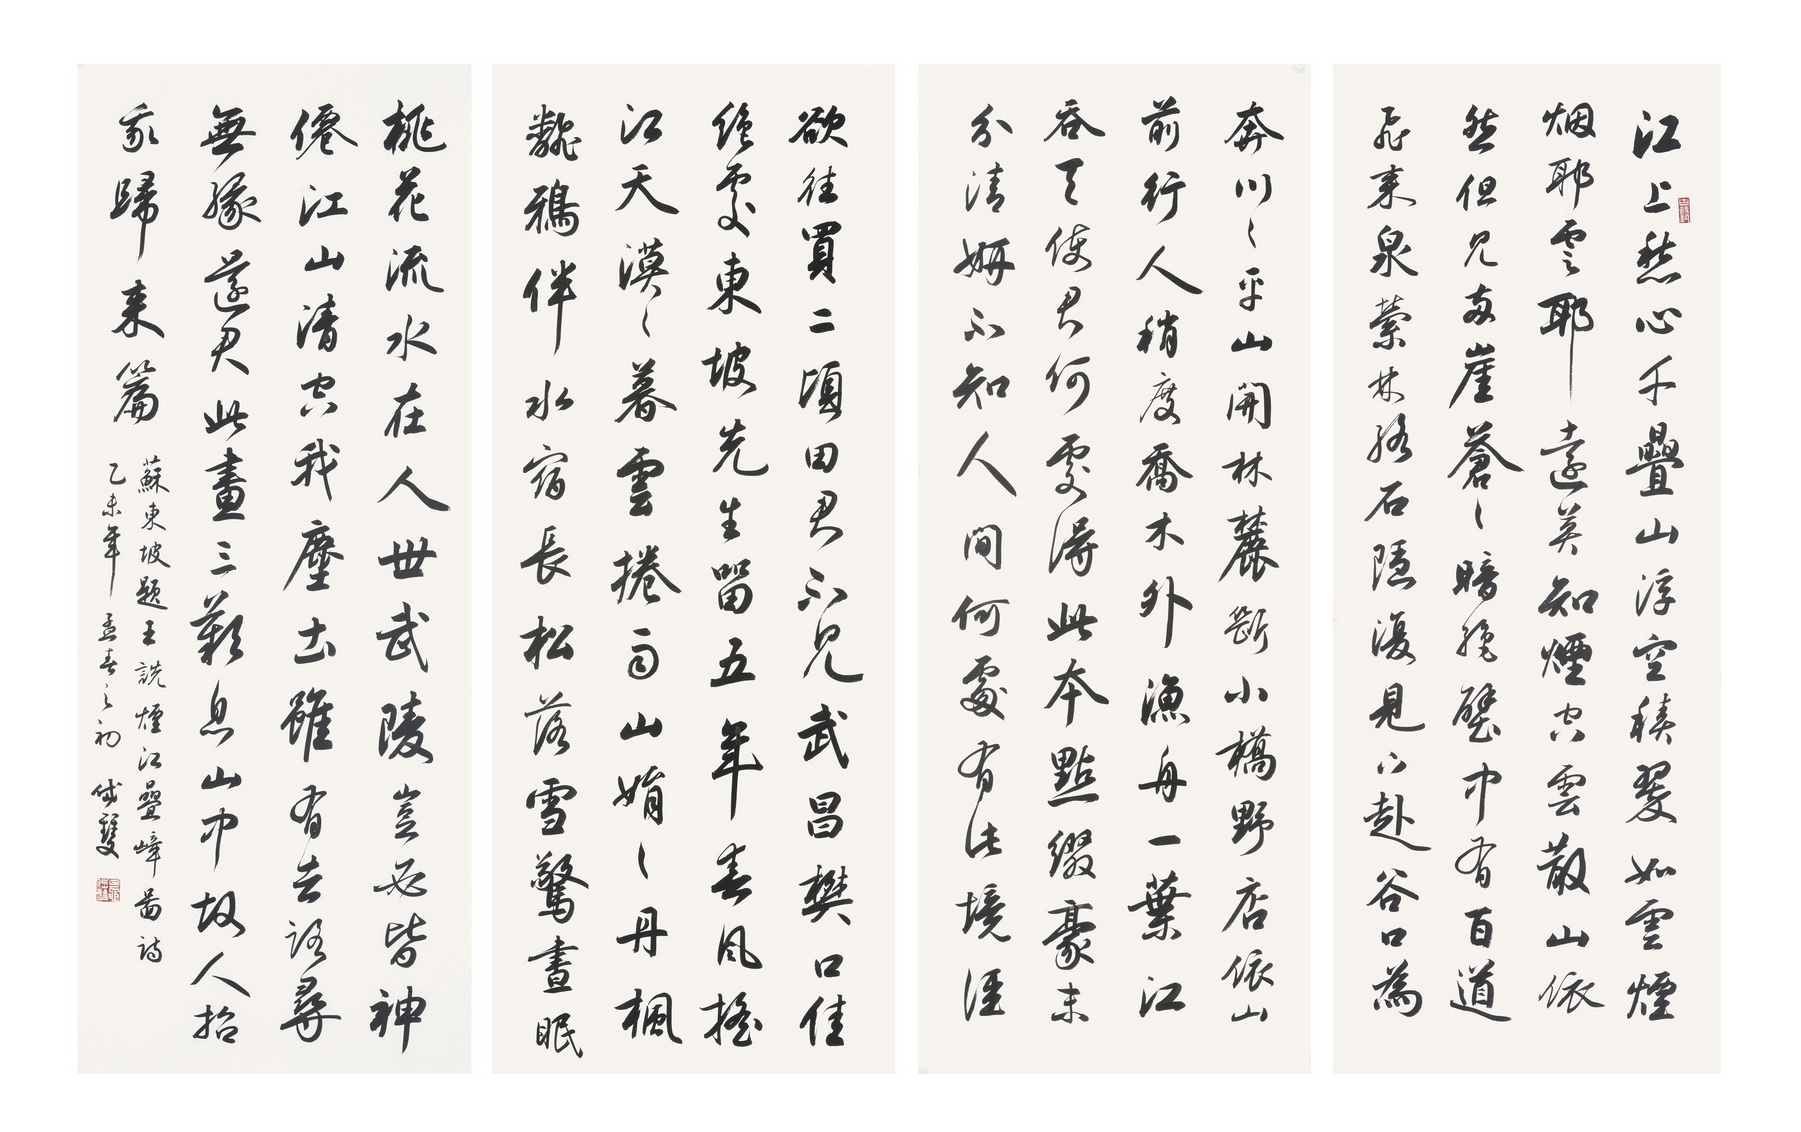 江上愁心千疊山浮空積翠如雲煙
烟耶雲耶遠莫知煙空雲散山依
然但見兩崖蒼々暗絕壁中有百道
飛來泉縈林絡石隱復見下赴谷口為
奔川々平山開林麓斷小橋野店依山
前行人稍度喬木外漁舟一葉江
吞天使君何處得此本點綴豪末
分清妍不知人間何處有此境徑
欲往買二頃田君不見武昌樊口佳
絕處東坡先生留五年春風搖
江天漠々暮雲捲雨山娟々丹楓
翻鴉伴水宿長松落雪驚晝眠
桃花流水在人世武陵豈必皆神
僊江山清空我塵土雖有去路尋
無緣還君此畫三歎息山中故人招
我歸來篇
蘇東坡題王詵煙江疊嶂圖詩
乙未年孟春之初